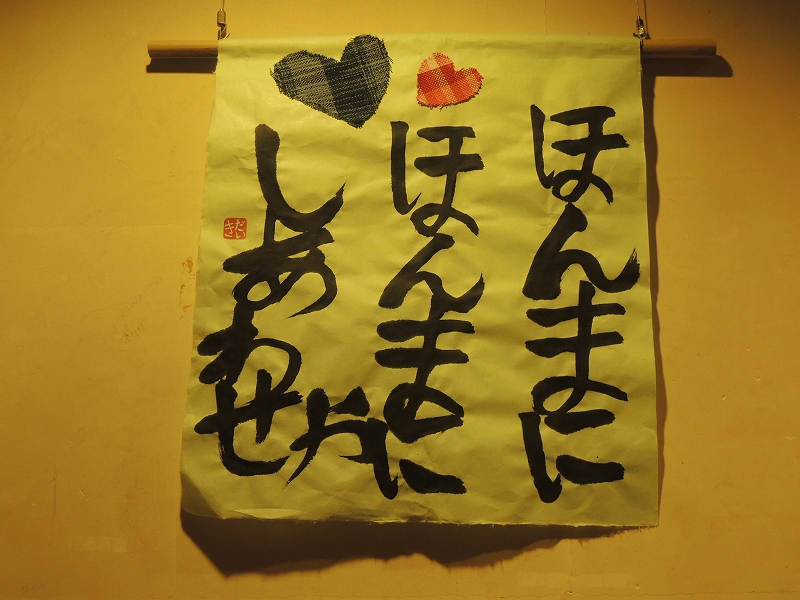 ほんまに
ほんまに
しあわせ
や
だいき